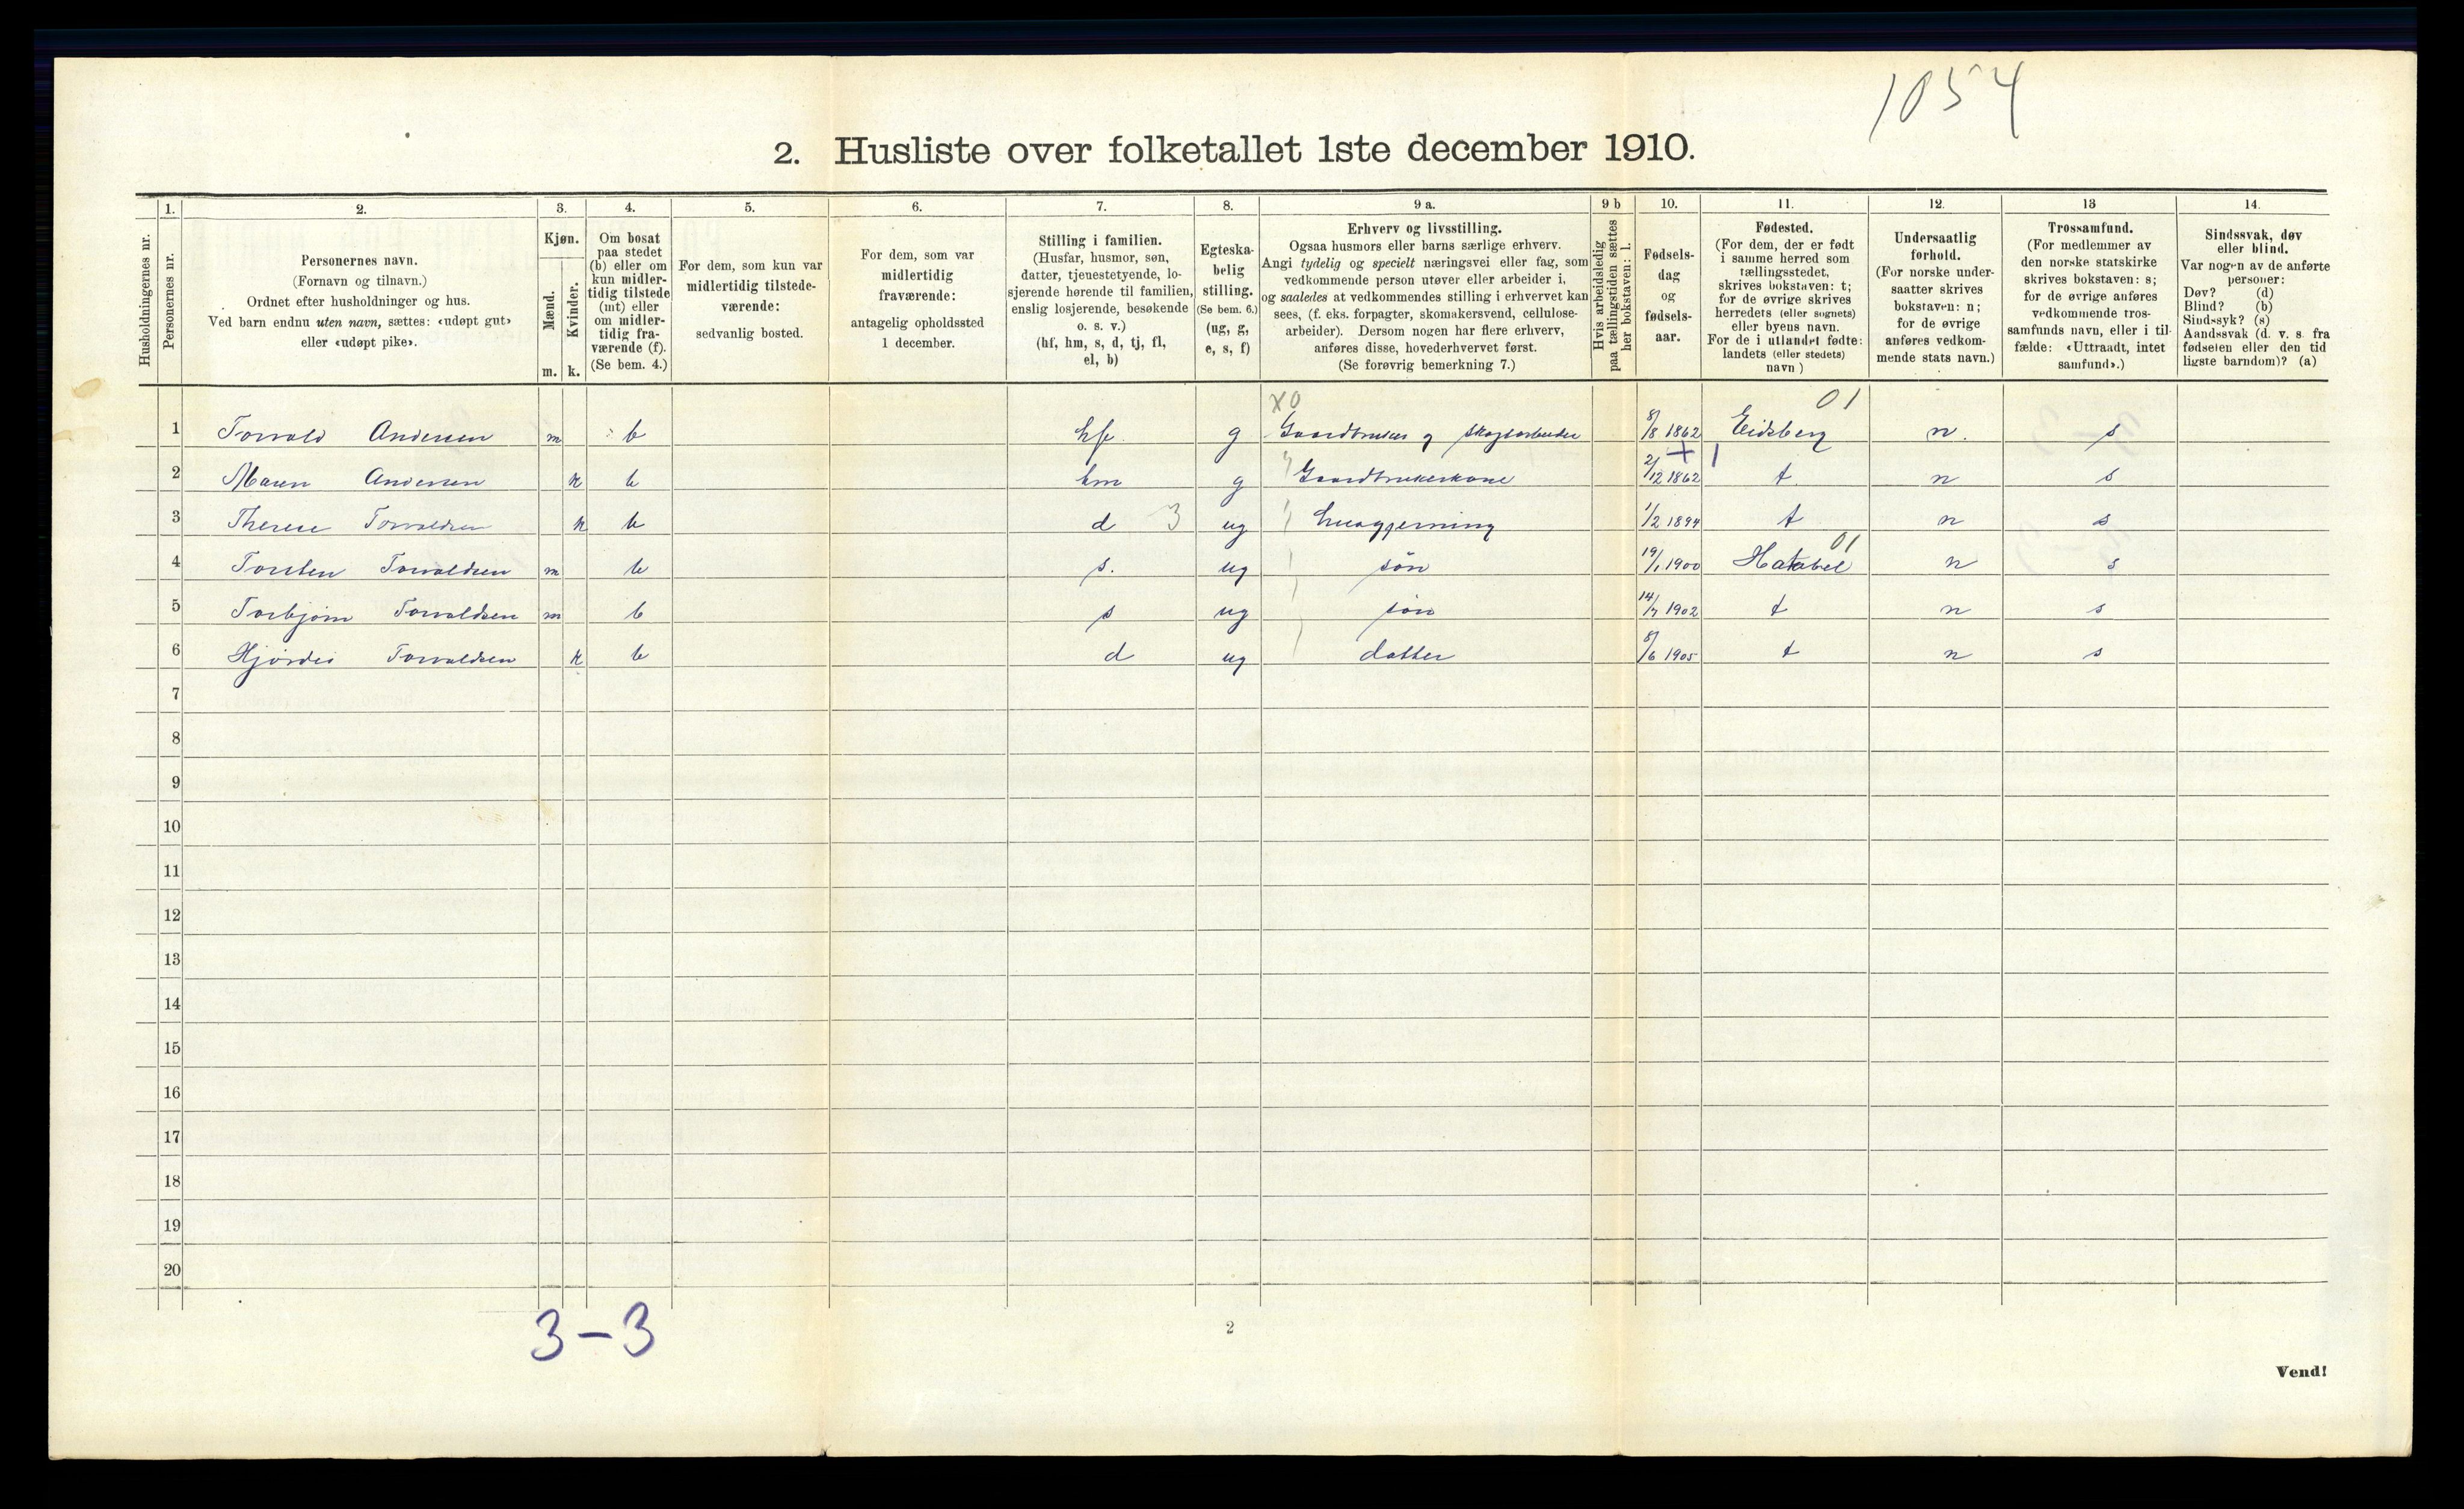 1054
2. Husliste over folketallet 1ste december 1910.
Husholdningernes nr.
1.
Personernes nr.
2.
Personernes navn.
(Fornavn og tilnavn.)
Ordnet efter husholdninger og hus.
Ved barn endnu uten navn, sættes: «udøpt gut»
eller «udøpt pike».
3.
Kjøn.
Mænd.
Kvinder.
m. k.
4.
Om bosat
paa stedet
(b) eller om
kun midler-
tidig tilstede
(mt) eller
om midler-
tidig fra-
værende (f).
(Se bem. 4.)
5.
For dem, som kun var
midlertidig tilstede-
værende:
sedvanlig bosted.
6.
For dem, som var
midlertidig
fraværende:
antagelig opholdssted
1 december.
7.
Stilling i familien.
(Husfar, husmor, søn,
datter, tjenestetyende, lo-
sjerende hørende til familien,
enslig losjerende, besøkende
o. s. v.)
(hf, hm, s, d, tj, fl,
el, b)
8.
Egteska-
belig
stilling.
(Se bem. 6.)
(ug, g,
e, s, f)
9 a.
Erhverv og livsstilling.
Ogsaa husmors eller barns særlige erhverv.
Angi tydelig og specielt næringsvei eller fag, som
vedkommende person utøver eller arbeider i,
og saaledes at vedkommendes stilling i erhvervet kan
sees, (f. eks. forpagter, skomakersvend, cellulose-
arbeider). Dersom nogen har flere erhverv,
anføres disse, hovederhvervet først.
(Se forøvrig bemerkning 7.)
9 b
Hvis arbeidsledig
paa tællingstiden sættes
her bokstaven: l.
10.
Fødsels-
dag
og
fødsels-
aar.
11.
Fødested.
(For dem, der er født
i samme herred som
tællingsstedet,
skrives bokstaven: t;
for de øvrige skrives
herredets (eller sognets)
eller byens navn.
For de i utlandet fødte:
landets (eller stedets)
navn )
12.
Undersaatlig
forhold.
(For norske under-
saatter skrives
bokstaven: n;
for de øvrige
anføres vedkom-
mende stats navn.)
13
Trossamfund.
(For medlemmer av
den norske statskirke
skrives bokstaven: s;
for de øvrige anføres
vedkommende tros-
samfunds navn, eller i til-
fælde: «Uttraadt, intet
samfund».)
14.
Sindssvak, døv
eller blind.
Var nogen av de anførte
personer:
Døv? (d)
Blind? (b)
Sindssyk? (s)
Aandssvak (d. v. s. fra
fødselen eller den tid
ligste barndom)? (a)
X0 01
1 Torvald Andersen m b hf. g Gaardbruker og skogsarbeider 8/8 1862 Eidsberg n. s
2 Maren Andersen k b hm g Gaardbrukerkone 2/12 1862 t. n s
3 Therese Torvaldsen k b d 3 ug husgjerning 1/2 1894 t n s
01
4 Torsten Torvaldsen m b s. ug søn 19/1 1900 Hakabel n s
5 Torbjørn Torvaldsen m b s ug søn 14/7 1902 t n s
6 Hjørdis Torvaldsen k b d ug datter 8/6 1905 t n s
7
8
9
10
11
12
13
14
15
16
17
18
19
20
3-3
2
Vend!